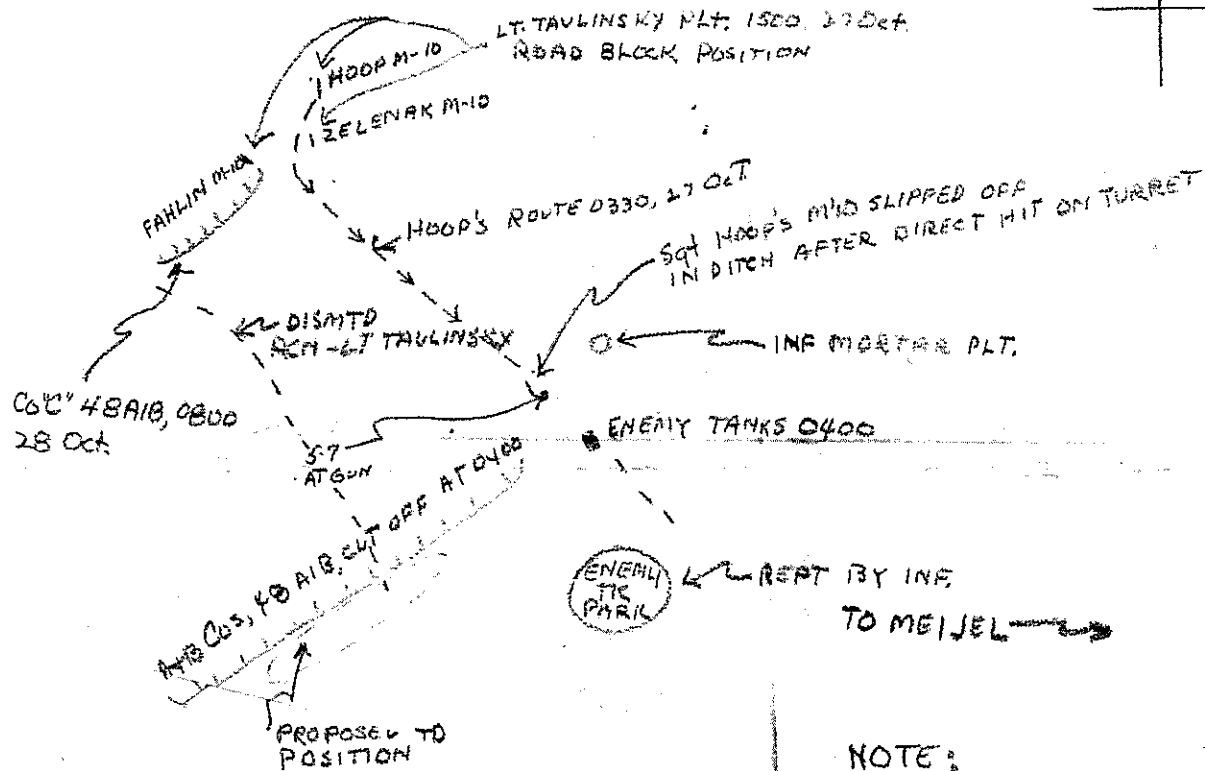 LT. TAULINSKY PLT. 1500, 27 Oct.
ROAD BLOCK POSITION
HOOP M-10
ZELENAK M-10
FAHLIN M-10
HOOP'S ROUTE 0330, 27 OCT
Sgt HOOP'S M'10 SLIPPED OFF
IN DITCH AFTER DIRECT HIT ON TURRET
DISMTD
RCN-LT TAULINSKY
INF MORTAR PLT.
Co"C" 48 AIB, 0800
28 Oct.
57
AT GUN
ENEMY TANKS 0400
A+B COS, 48 AIB, CUT OFF AT 0400
ENEMY
TK
PARK
REPT BY INF.
TO MEIJEL
PROPOSED TD
POSITION
NOTE: